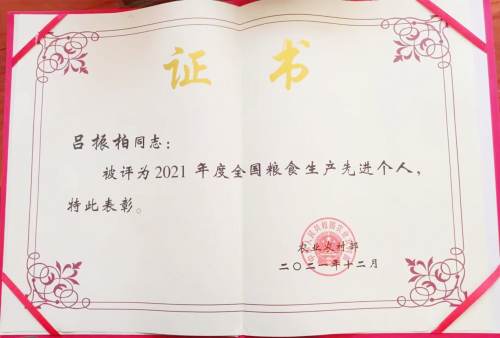 证书
吕振柏同志：
被评为2021年度全国粮食生产先进个人，
特此表彰。
农业农村部
二〇二一年十二月